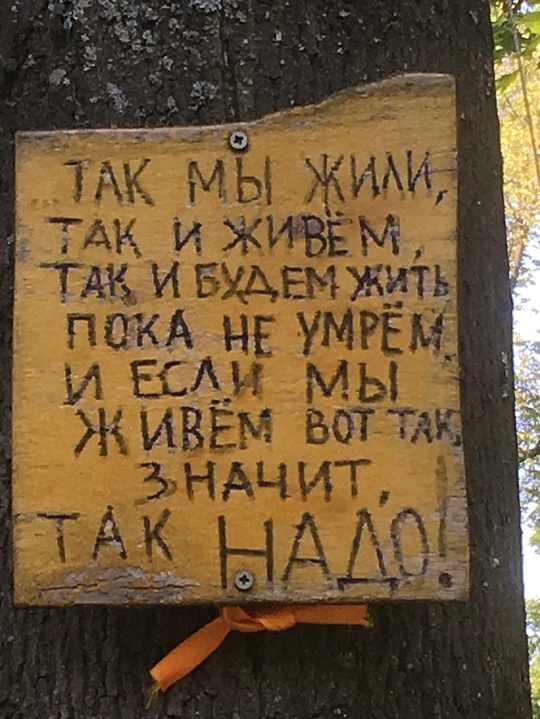 ...ТАК МЫ ЖИЛИ,
ТАК И ЖИВЁМ,
ТАК И БУДЕМ ЖИТЬ
ПОКА НЕ УМРЁМ.
И ЕСЛИ МЫ
ЖИВЁМ ВОТ ТАК,
ЗНАЧИТ,
ТАК НАДО!